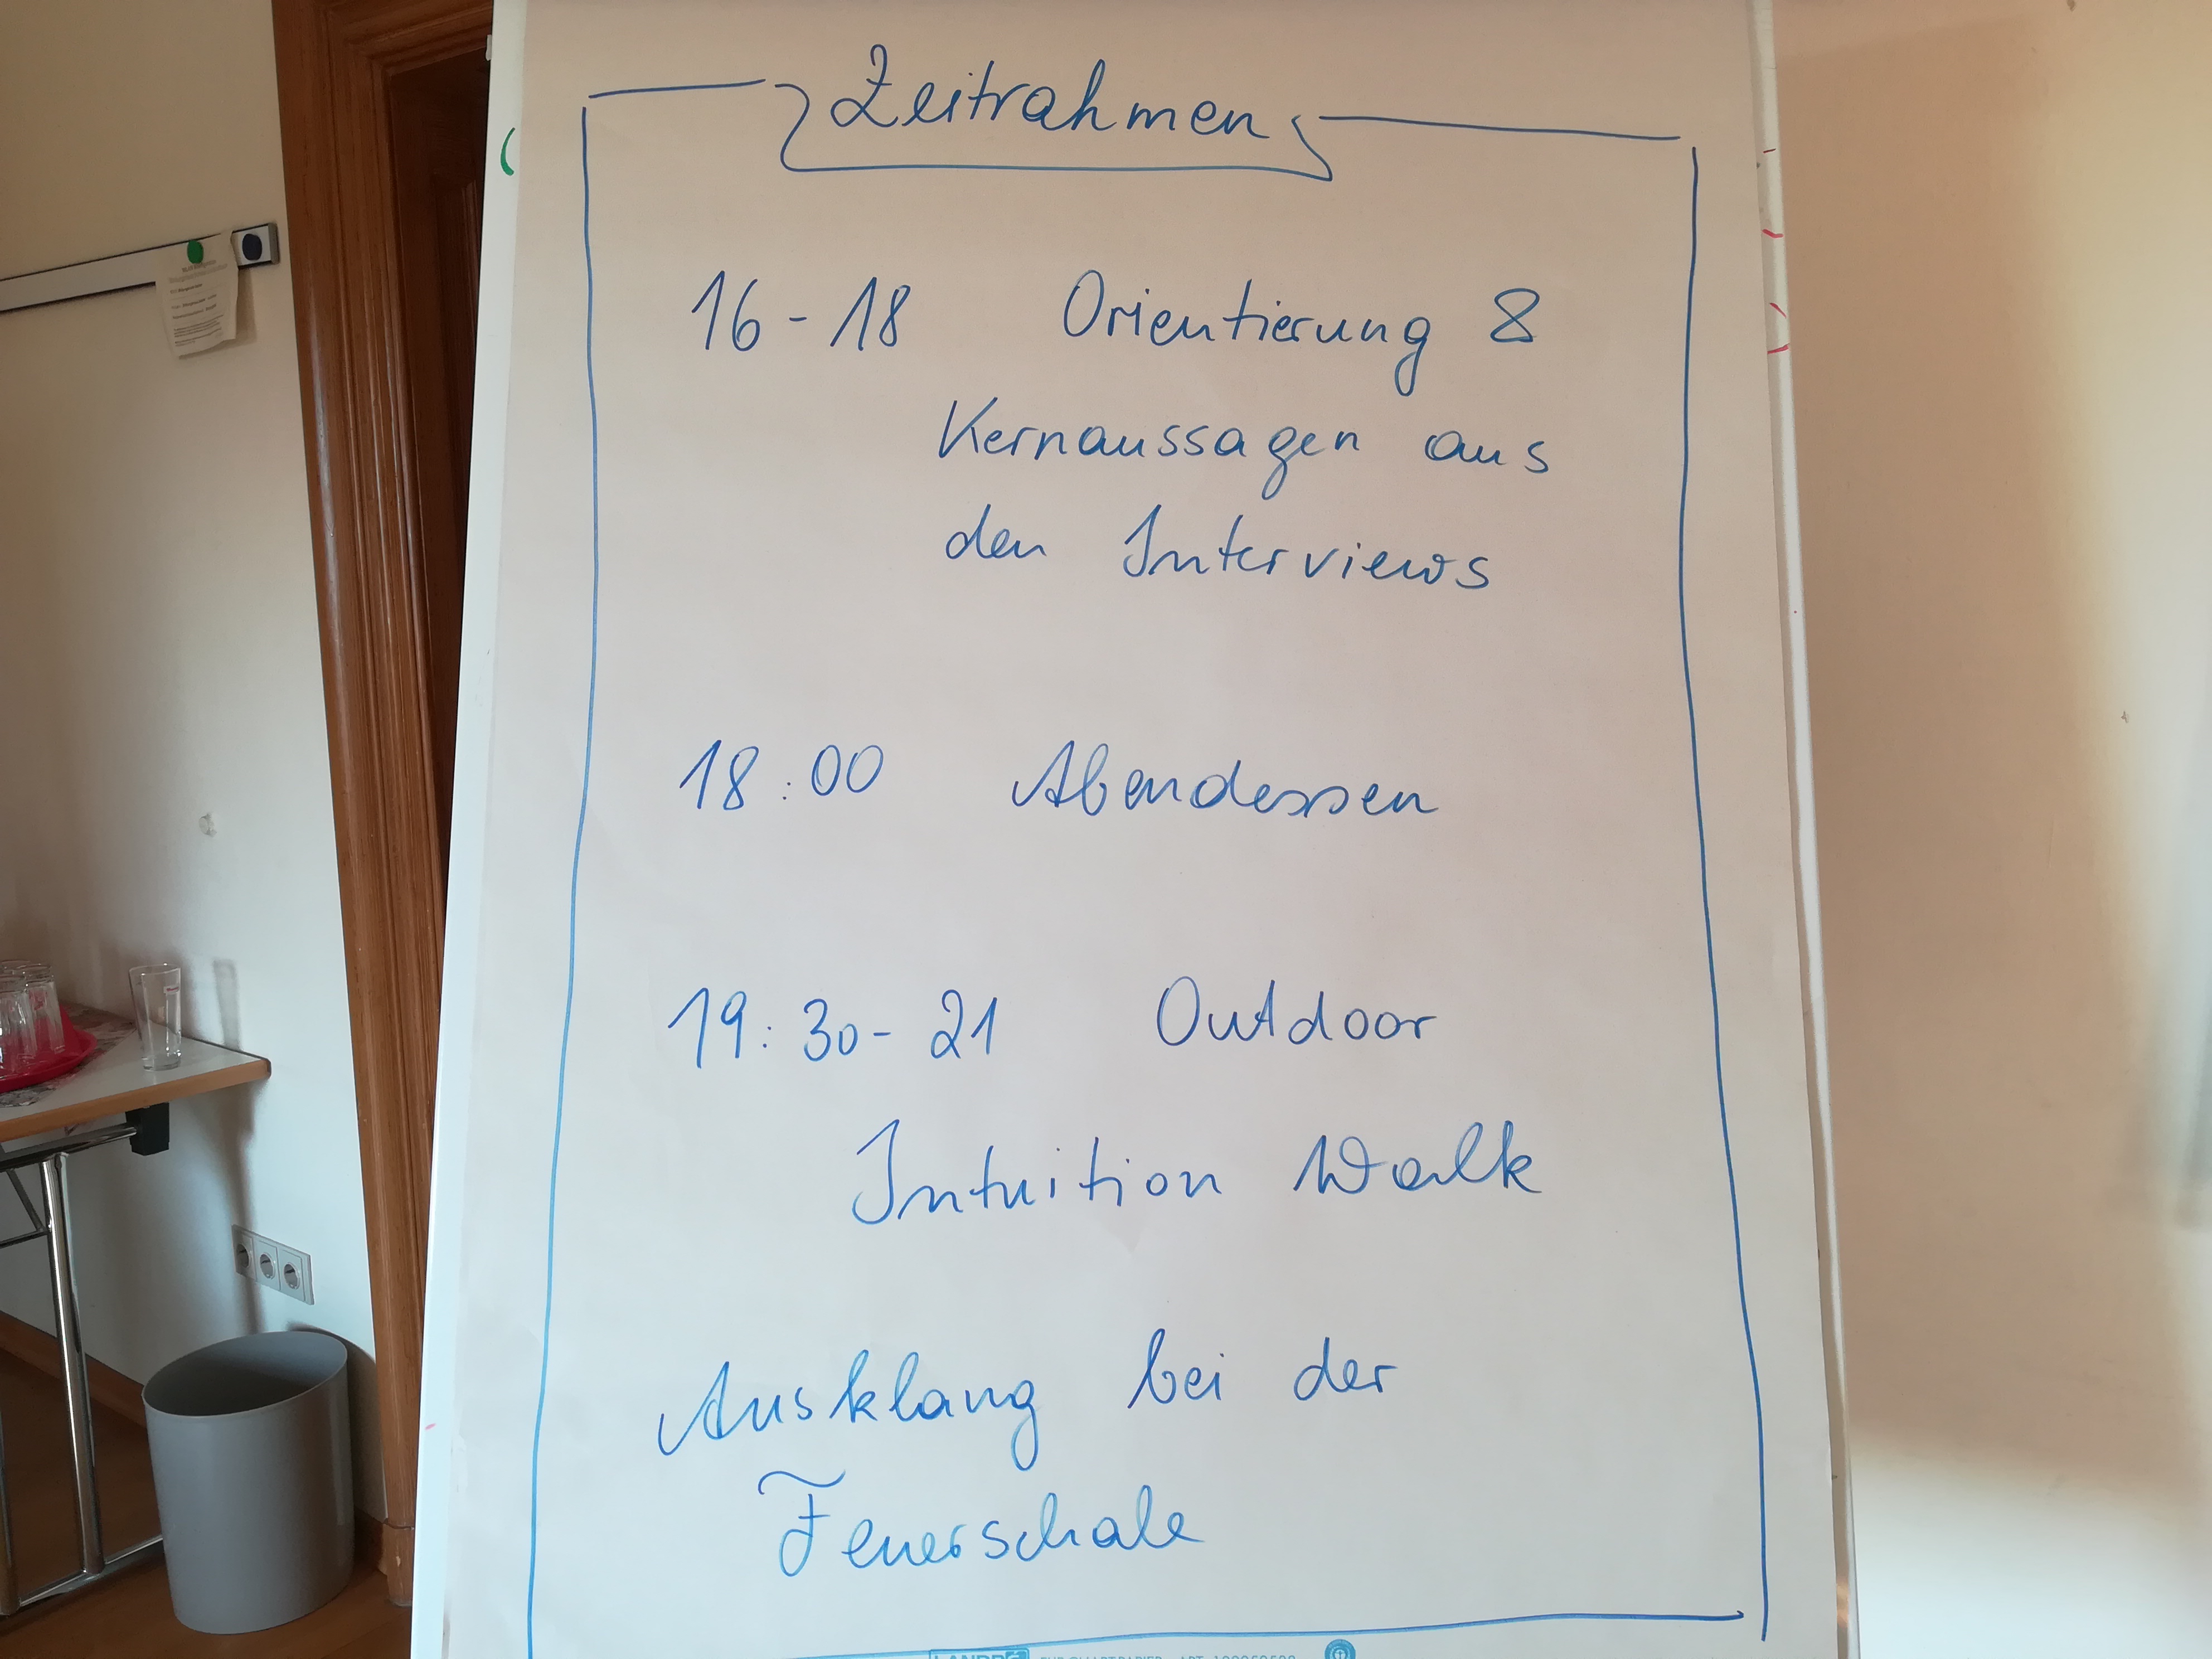 Zeitrahmen
16 - 18 Orientierung &
Kernaussagen aus
den Interviews
18:00 Abendessen
19:30 - 21 Outdoor
Intuition Walk
Ausklang bei der
Feuerschale
LANDRÉ